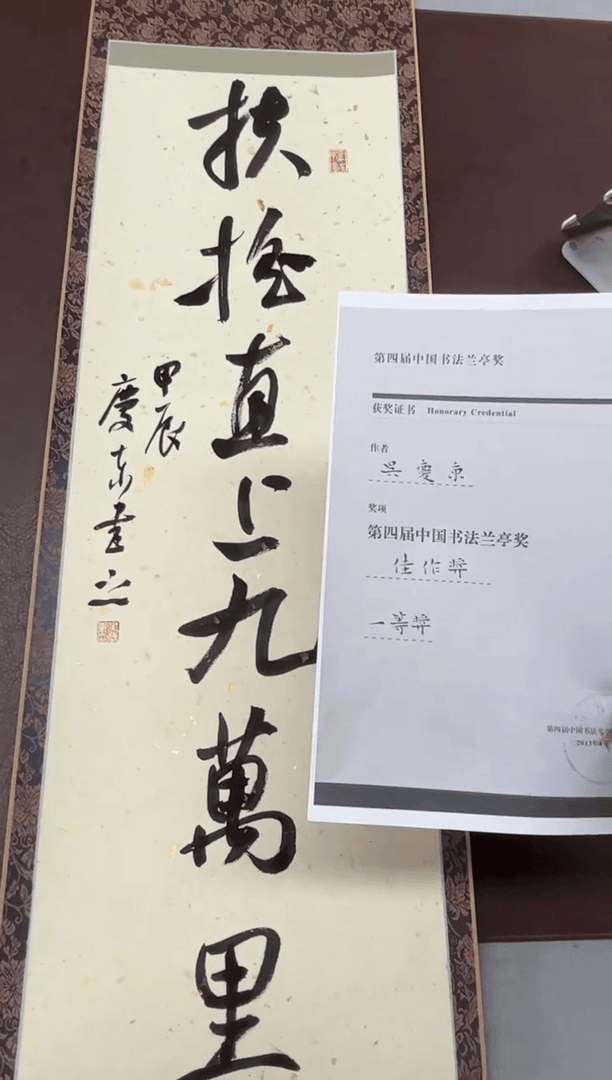 扶摇直上九萬里
甲辰
慶东書之
第四届中国书法兰亭奖
获奖证书 Honorary Credential
作者
吴慶东
奖项
第四届中国书法兰亭奖
佳作奖
一等奖
第四届中国书法兰
2013年